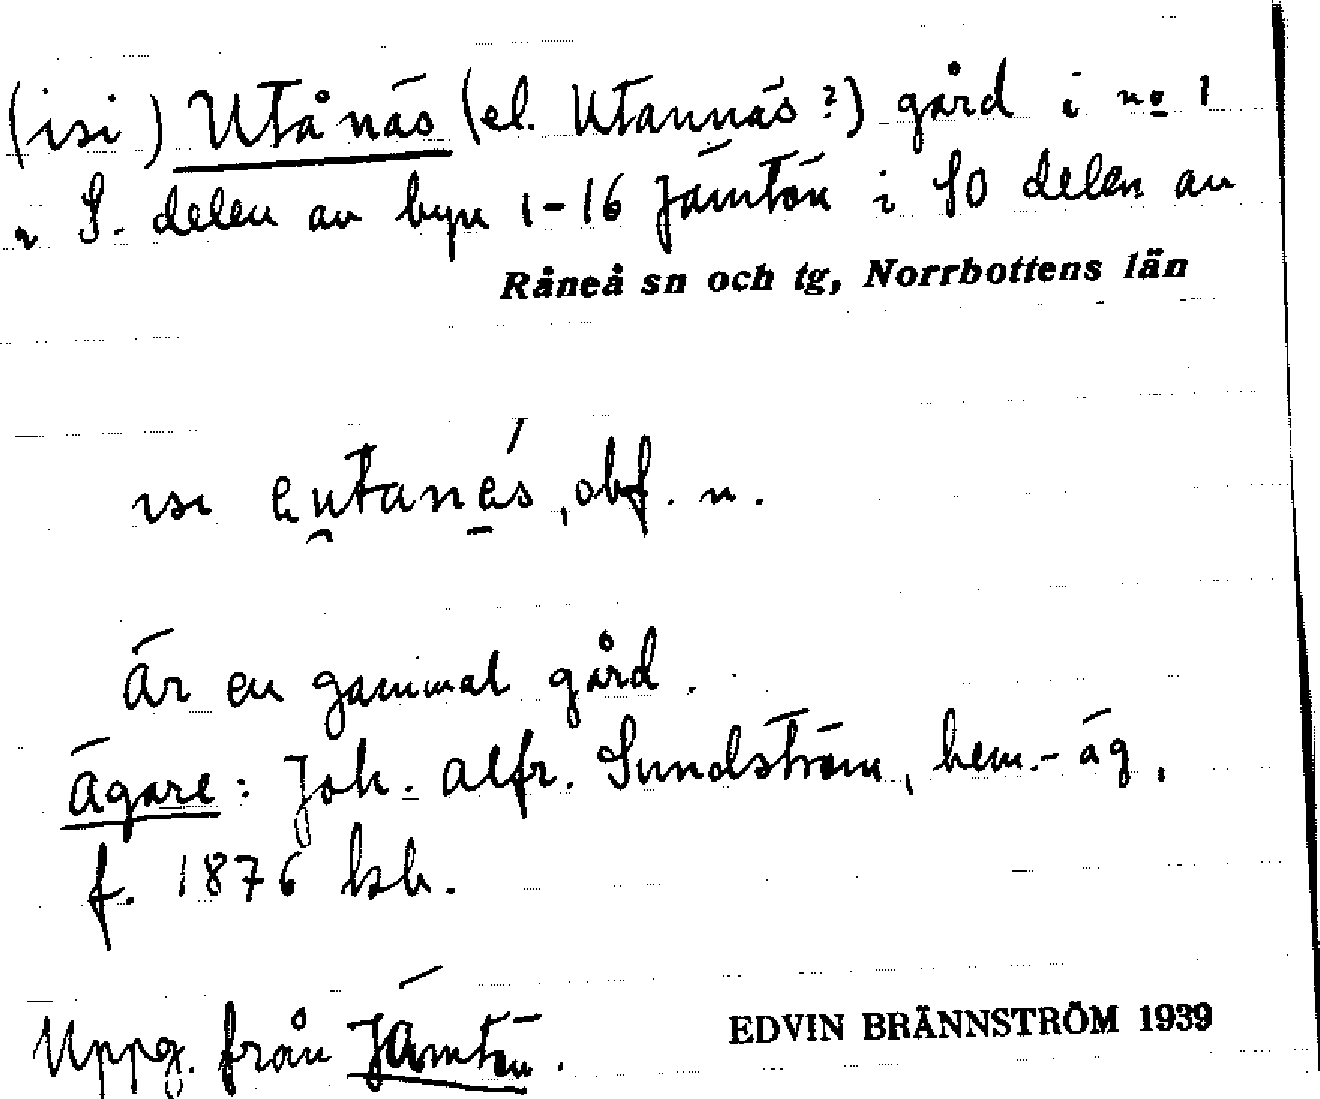 (isi) Utånäs (el. Utannäs?) gård i no 1
i S. delen av byn 1-16 Jämtön i SO delen av
Råneå sn och tg, Norrbottens län
isi eu̯tanẹ́s, obf. n.
Är en gammal gård.
Ägare: Joh. Alfr. Sundström, hem.-äg,
f. 1876 kb.
Uppg. från Jämtön.
EDVIN BRÄNNSTRÖM 1939